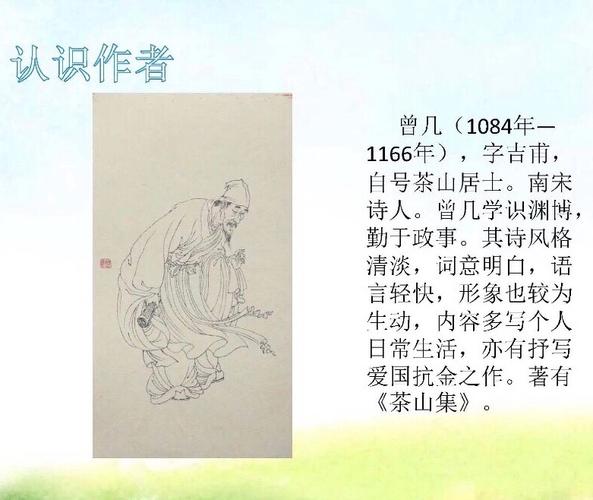 认识作者
曾几（1084年—
1166年），字吉甫，
自号茶山居士。南宋
诗人。曾几学识渊博，
勤于政事。其诗风格
清淡，词意明白，语
言轻快，形象也较为
生动，内容多写个人
日常生活，亦有抒写
爱国抗金之作。著有
《茶山集》。